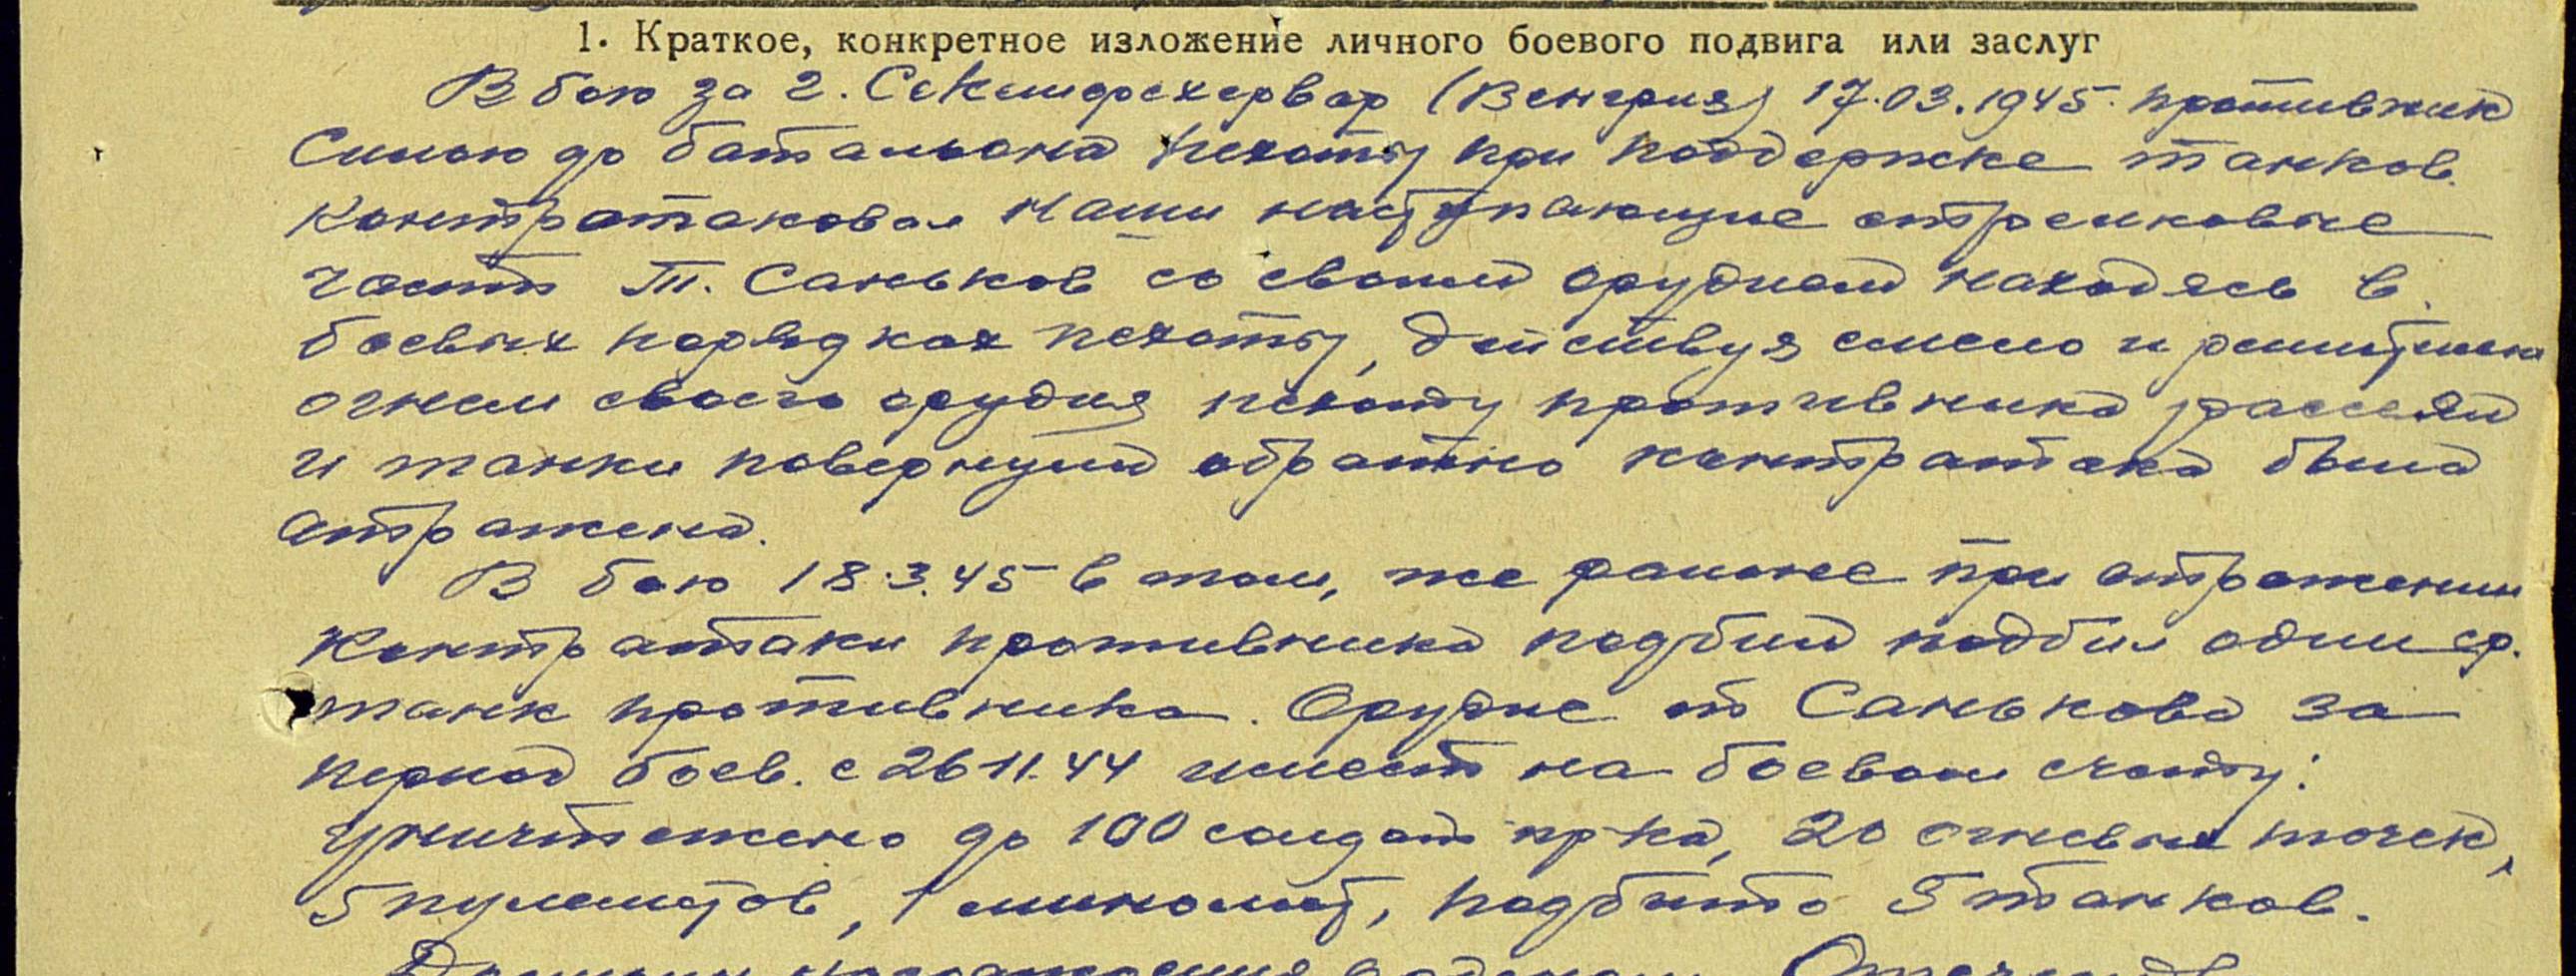 1. Краткое, конкретное изложение личного боевого подвига или заслуг
В бою за г. Секешфехервар (Венгрия) 17.03.1945 противник
Силою до батальона пехоты при поддержке танков.
контратаковал наши наступающие стрелковые
части Т. Саньков со своим орудием находясь в
боевых порядках пехоты, действуя смело и решительно
огнем своего орудия пехоту противника рассеял
и танки повернули обратно контратака была
отражена.
В бою 18.3.45 в том, же районе при отражении
контратаки противника подбил подбил один ср.
танк противника. Орудие т Санькова за
период боев. с 26 11.44 имеет на боевом счету:
уничтожено до 100 солдат пр-ка, 20 огневых точек,
5 пулеметов, 1 миномет, подбито 5 танков.